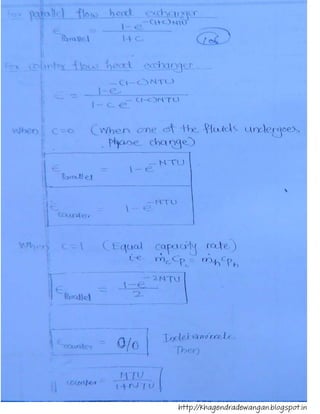 For parallel flow heat exchanger
ϵ_Parallel = (1-e^-(1+C)NTU)/(1+C)
106
For counter flow heat exchanger
ϵ = (1-e^-(1-C)NTU)/(1-C e^-(1-C)NTU)
When C=0 (When one of the fluids undergoes
Phase change)
ϵ_Parallel = 1-e^-NTU
ϵ_counter = 1-e^-NTU
When C=1 (Equal capacity rate)
i.e ṁ_c Cp_c = ṁ_h Cp_h
ϵ_Parallel = (1-e^-2NTU)/2
ϵ_counter = 0/0 Indeterminate
Then
ϵ_counter = NTU/(1+NTU)
http://khagendradewangan.blogspot.in